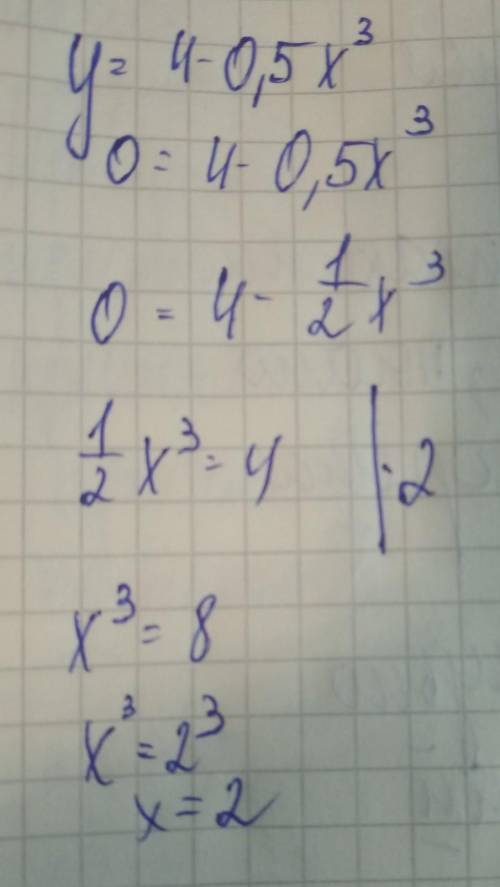 y = 4 - 0,5x³
0 = 4 - 0,5x³
0 = 4 - 1/2 x³
1/2 x³ = 4 | · 2
x³ = 8
x³ = 2³
x = 2